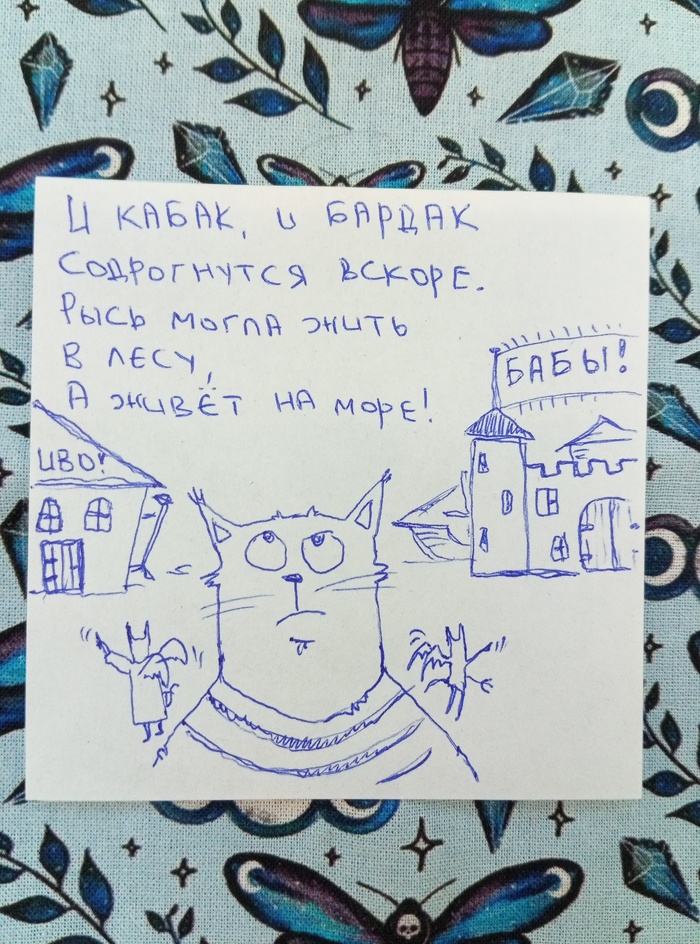 И КАБАК, И БАРДАК
СОДРОГНУТСЯ ВСКОРЕ.
РЫСЬ МОГЛА ЖИТЬ
В ЛЕСУ,
А ЖИВЁТ НА МОРЕ!
БАБЫ!
ИВО!